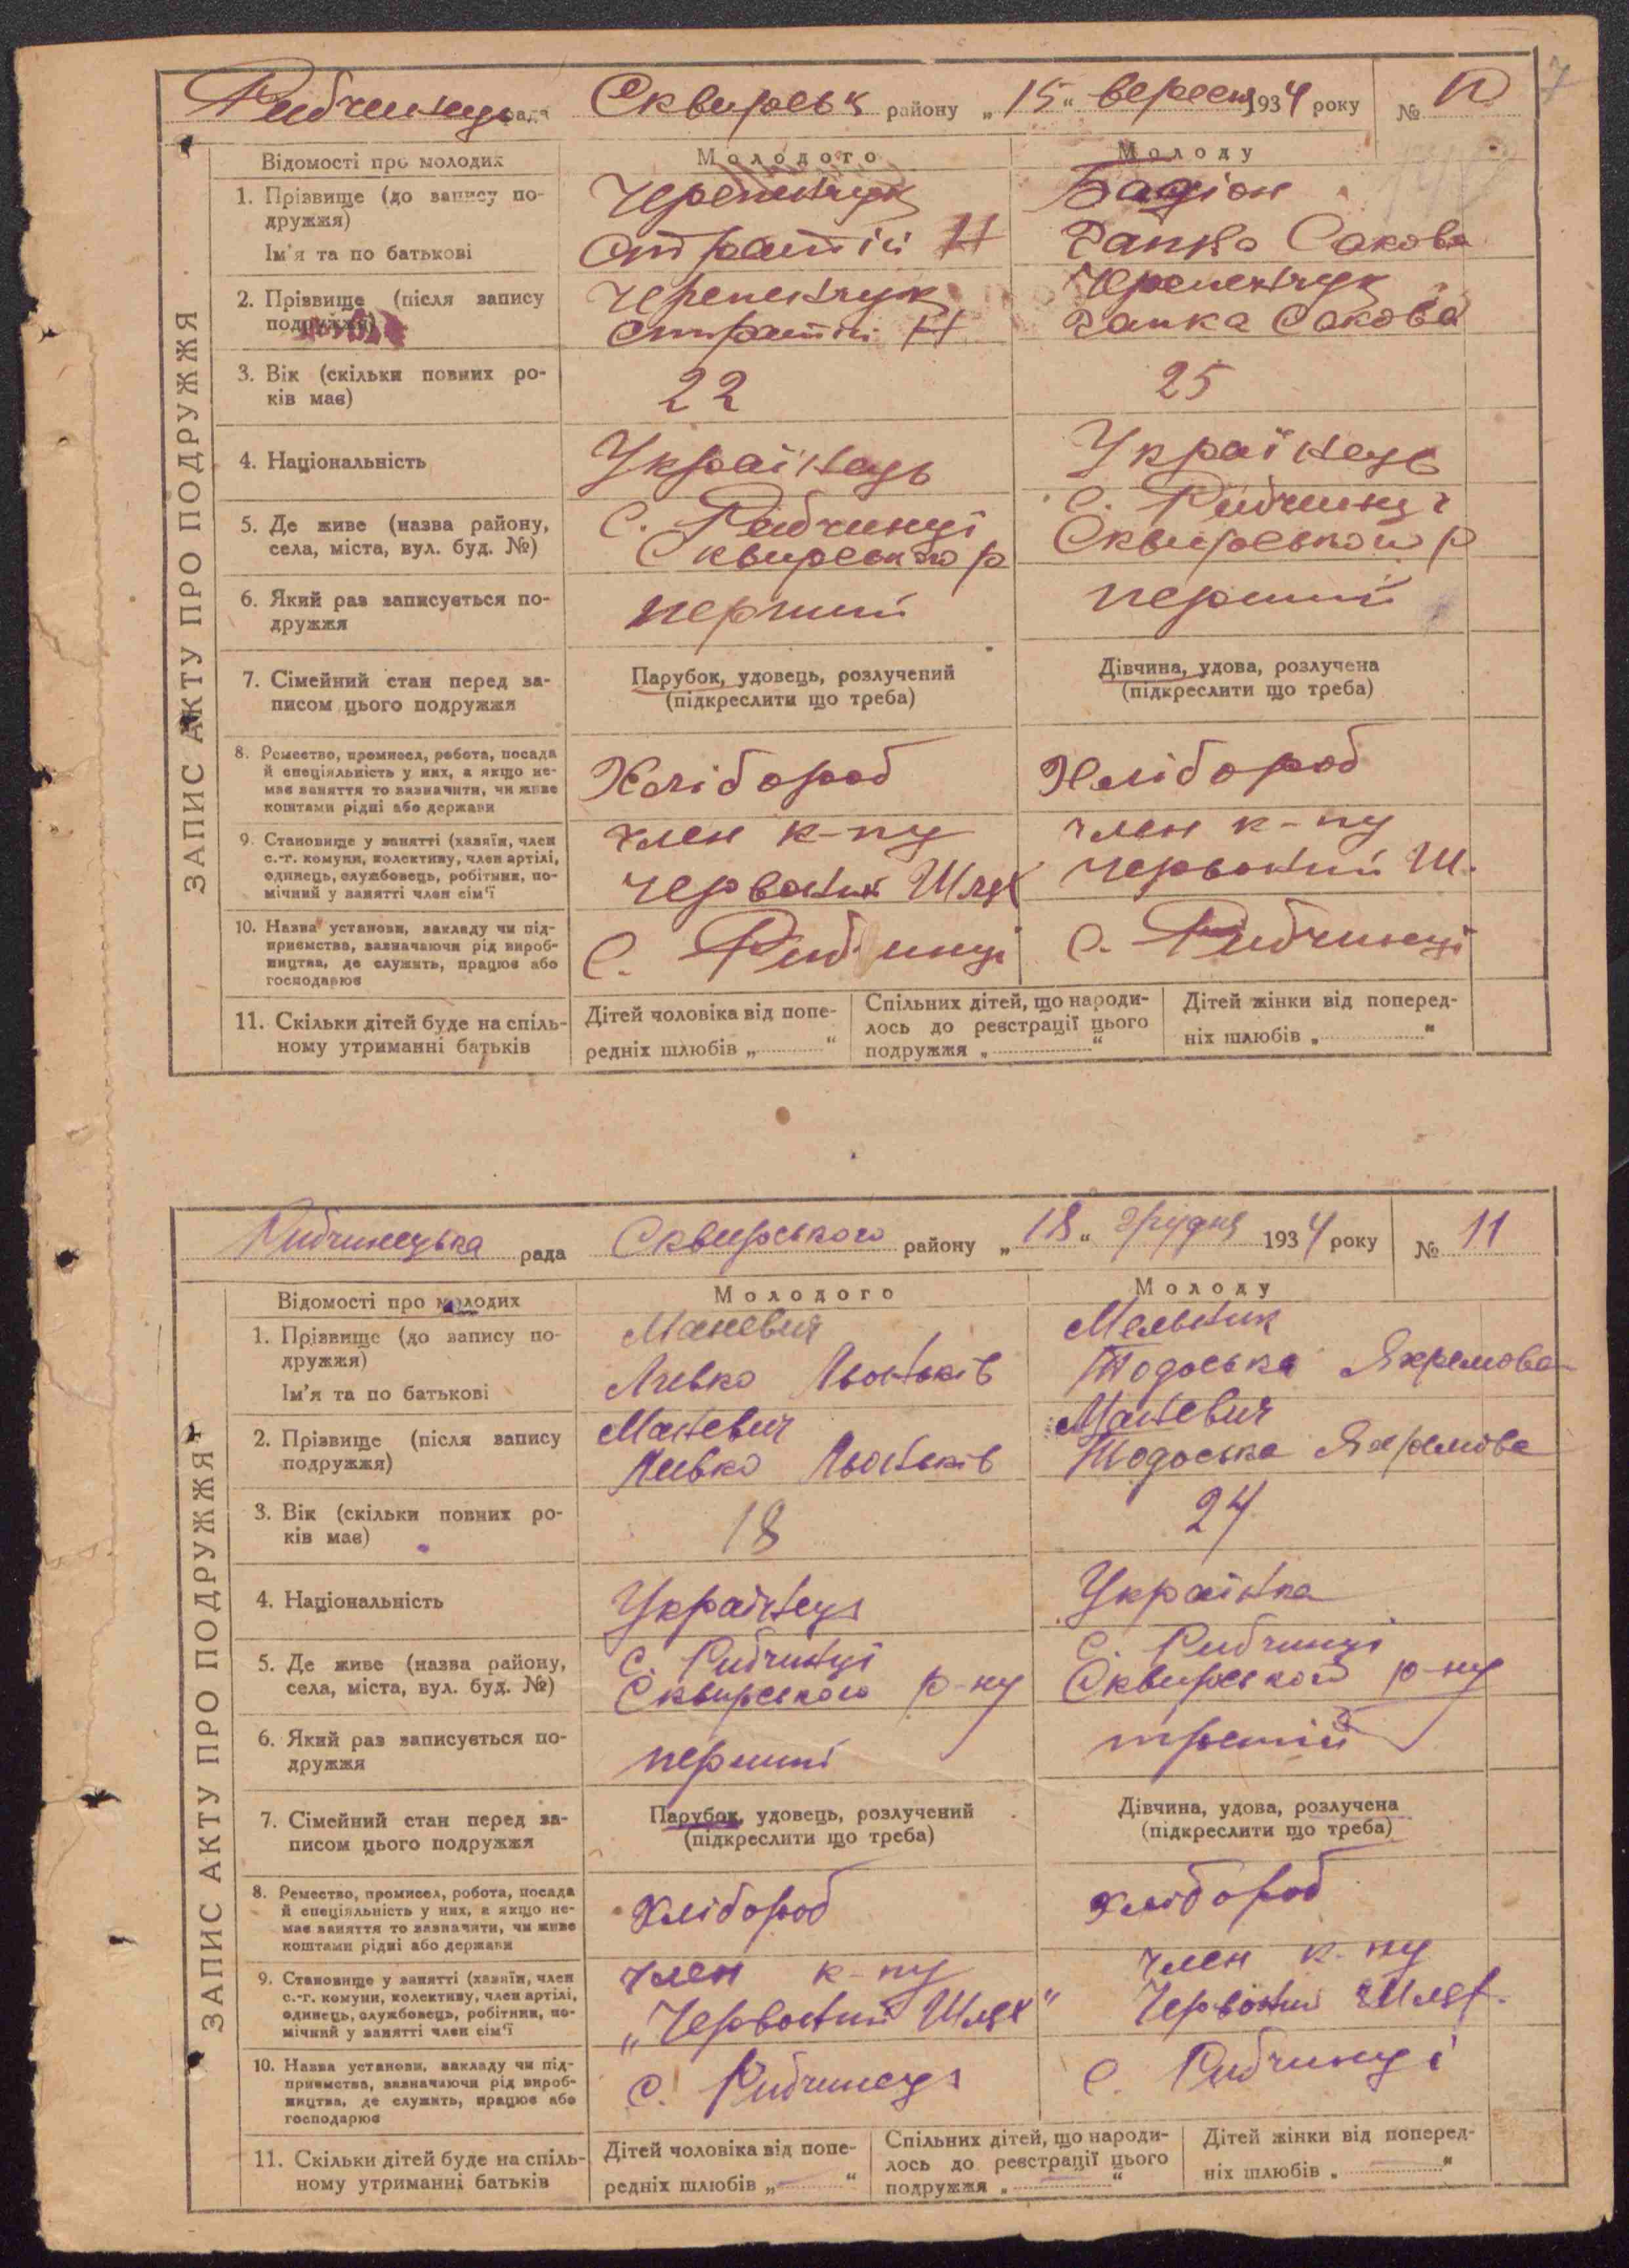 Рибчинець рада Сквирськ району „15“ вересн 1934 року № 10
7
ЗАПИС АКТУ ПРО ПОДРУЖЖЯ
Відомості про молодих
Молодого
Молоду
1. Прізвище (до запису подружжя)
Черепенчук
Бадіон
Ім'я та по батькові
Стратій Н
Ганка Сакова
2. Прізвище (після запису подружжя)
Черепенчук
Стратій Н
Черепенчук
Ганка Сакова
3. Вік (скільки повних років має)
22
25
4. Національність
Українець
Українець
5. Де живе (назва району, села, міста, вул. буд. №)
С. Рибчинці
Сквирського р
С. Рибчинці
Сквирського р
6. Який раз записується подружжя
перший
перший
7. Сімейний стан перед записом цього подружжя
Парубок, удовець, розлучений
(підкреслити що треба)
Дівчина, удова, розлучена
(підкреслити що треба)
8. Ремество, промисел, робота, посада й спеціяльність у них, а якщо немає заняття то зазначити, чи живе коштами рідні або держави
Хлібороб
Хлібороб
9. Становище у занятті (хазяїн, член с.-г. комуни, колективу, член артілі, одинець, службовець, робітник, помічний у занятті член сім'ї
член к-пу
Червоний Шлях
член к-пу
Червоний Ш.
10. Назва установи, закладу чи підприємства, зазначаючи рід виробництва, де служить, працює або господарює
С. Рибчинці
С. Рибчинці
11. Скільки дітей буде на спільному утриманні батьків
Дітей чоловіка від попередніх шлюбів „ “
Спільних дітей, що народилось до реєстрації цього подружжя „ “
Дітей жінки від попередніх шлюбів „ “
Рибчинецька рада Сквирського району „18“ грудня 1934 року № 11
ЗАПИС АКТУ ПРО ПОДРУЖЖЯ
Відомості про молодих
Молодого
Молоду
1. Прізвище (до запису подружжя)
Маневич
Мельник
Ім'я та по батькові
Ливко Льоньків
Тодоська Яхремова
2. Прізвище (після запису подружжя)
Маневич
Ливко Льоньків
Маневич
Тодоська Яхремова
3. Вік (скільки повних років має)
18
24
4. Національність
Українець
Українка
5. Де живе (назва району, села, міста, вул. буд. №)
С. Рибчинці
Сквирського р-ну
С. Рибчинці
Сквирського р-ну
6. Який раз записується подружжя
перший
третій
7. Сімейний стан перед записом цього подружжя
Парубок, удовець, розлучений
(підкреслити що треба)
Дівчина, удова, розлучена
(підкреслити що треба)
8. Ремество, промисел, робота, посада й спеціяльність у них, а якщо немає заняття то зазначити, чи живе коштами рідні або держави
Хлібороб
Хлібороб
9. Становище у занятті (хазяїн, член с.-г. комуни, колективу, член артілі, одинець, службовець, робітник, помічний у занятті член сім'ї
член к-пу
„Червоний Шлях“
член к-пу
Червоний Шлях.
10. Назва установи, закладу чи підприємства, зазначаючи рід виробництва, де служить, працює або господарює
С. Рибчинці
С. Рибчинці
11. Скільки дітей буде на спільному утриманні батьків
Дітей чоловіка від попередніх шлюбів „ “
Спільних дітей, що народилось до реєстрації цього подружжя „ “
Дітей жінки від попередніх шлюбів „ “